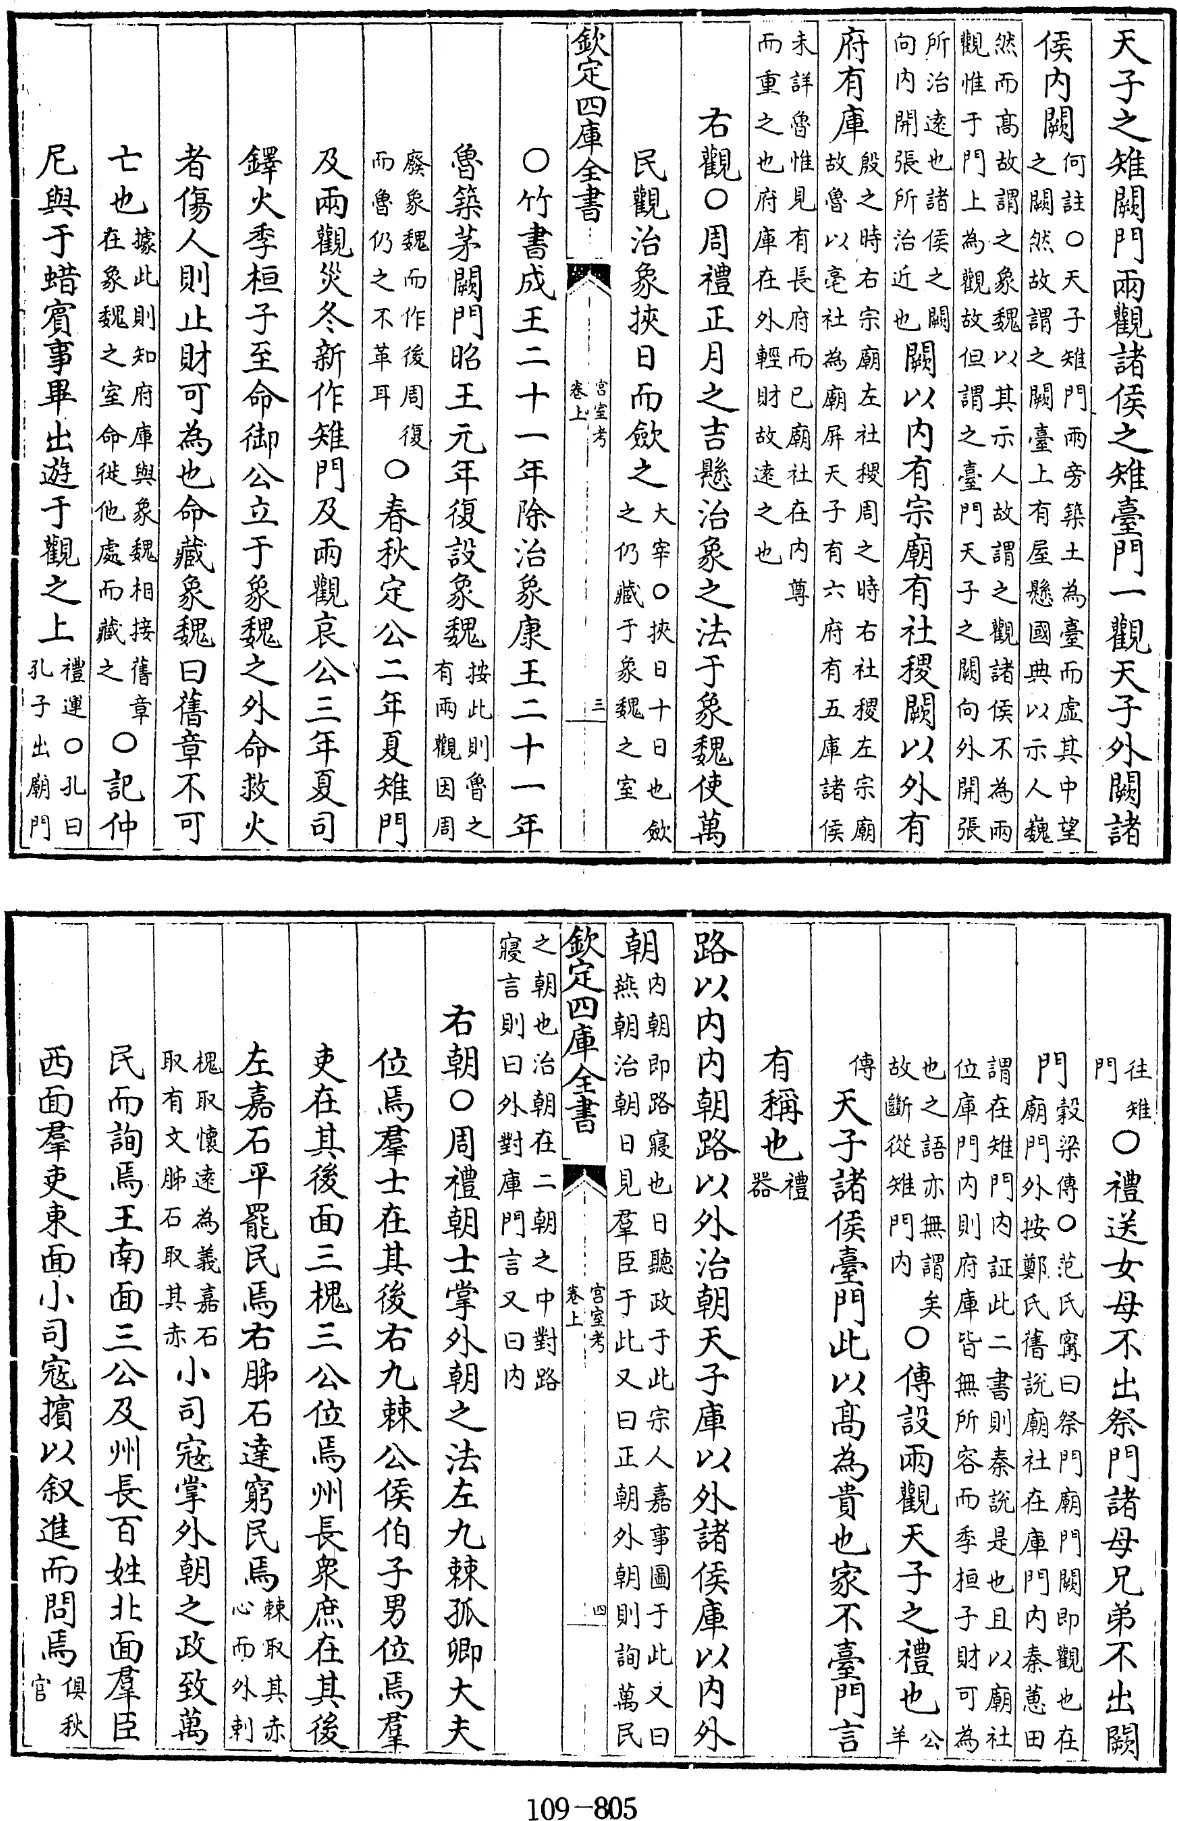 天子之雉闕門兩觀諸侯之雉臺門一觀天子外闕諸
侯内闕何註○天子雉門兩旁築土為臺而虛其中望之闕然故謂之闕臺上有屋懸國典以示人巍
然而髙故謂之象魏以其示人故謂之觀諸侯不為兩觀惟于門上為觀故但謂之臺門天子之闕向外開張
所治逺也諸侯之闕向内開張所治近也闕以内有宗廟有社稷闕以外有
府有庫殷之時右宗廟左社稷周之時右社稷左宗廟故魯以亳社為廟屏天子有六府有五庫諸侯
未詳魯惟見有長府而已廟社在内尊而重之也府庫在外輕財故逺之也
右觀○周禮正月之吉懸治象之法于象魏使萬
民觀治象挾日而斂之大宰○挾日十日也斂之仍藏于象魏之室
欽定四庫全書
宫室考
卷上
三
○竹書成王二十一年除治象康王二十一年
魯築茅闕門昭王元年復設象魏按此則魯之有兩觀因周
廢象魏而作後周復而魯仍之不革耳○春秋定公二年夏雉門
及兩觀災冬新作雉門及兩觀哀公三年夏司
鐸火季桓子至命御公立于象魏之外命救火
者傷人則止財可為也命藏象魏曰舊章不可
亡也據此則知府庫與象魏相接舊章在象魏之室命徙他處而藏之○記仲
尼與于蜡賓事畢出遊于觀之上禮運○孔曰孔子出廟門
往雉門○禮送女母不出祭門諸母兄弟不出闕
門穀梁傳○范氏甯曰祭門廟門闕即觀也在廟門外按鄭氏舊說廟社在庫門内秦蕙田
謂在雉門内証此二書則秦說是也且以廟社位庫門内則府庫皆無所容而季桓子財可為
也之語亦無謂矣故斷從雉門内○傳設兩觀天子之禮也公羊
傳天子諸侯臺門此以髙為貴也家不臺門言
有稱也禮器
路以内内朝路以外治朝天子庫以外諸侯庫以内外
朝内朝即路寢也日聽政于此宗人嘉事圖于此又曰燕朝治朝日見羣臣于此又曰正朝外朝則詢萬民
欽定四庫全書
宫室考
卷上
四
之朝也治朝在二朝之中對路寢言則曰外對庫門言又曰内
右朝○周禮朝士掌外朝之法左九棘孤卿大夫
位焉羣士在其後右九棘公侯伯子男位焉羣
吏在其後面三槐三公位焉州長衆庶在其後
左嘉石平罷民焉右肺石達窮民焉棘取其赤心而外刺
槐取懷逺為義嘉石取有文肺石取其赤小司寇掌外朝之政致萬
民而詢焉王南面三公及州長百姓北面羣臣
西面羣吏東面小司寇擯以叙進而問焉俱秋官
109-805